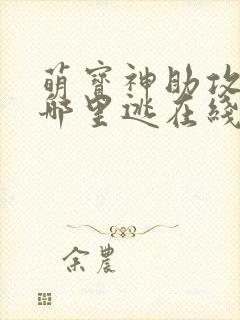 萌寶神助攻
哪里逃在綫
余農